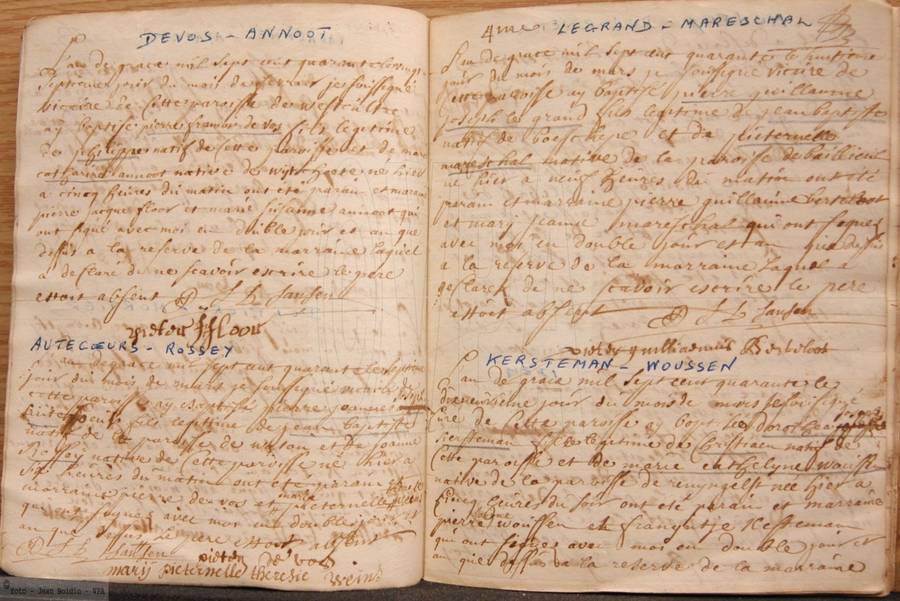 DEVOS - ANNOOT
L'an de grace mil sept cent quarante le vingt
septieme jour du mois de fevrier je soussigné
vicaire de cette paroisse de westoultre
ay baptisé pierre francois de vos fils legitime
de philippe natif de cette paroisse et de marie
catharine annoot native de wytschaete né hier
a cinq heures du matin ont été parain et maraine
pierre jacque floor et marie susanne annoot qui
ont signé avec moi en double jour et an que
dessus a la reserve de la marraine laquel
a declaré de ne scavoir escrire le pere
ettoit absent J L Jansen
pieter floor
AUTECŒURS - ROSSEY
L'an de grace mil sept cent quarante le
jour du mois de mars je soussigné vicaire de
cette paroisse ay baptisé pierre joannes
fils legitime de jean baptiste
natif de la paroisse de et de joanne
Rossey native de cette paroisse né hier a
six heures du matin ont été parain et
marraine pierre de vos et marie pieternelle
qui ont signés avec moi en double jour et
an que dessus le pere ettoit absent
J L Jansen
pieter de vos
marij pieternelle theresie weins
4me LEGRAND - MARESCHAL
L'an de grace mil sept cent quarante le huitieme
jour du mois de mars je soussigné vicaire de
cette paroisse ay baptisé pierre guillaume
joseph le grand fils legitime de jean baptiste
natif de boeschepe et de pieternelle
mareschal native de la paroisse de bailleul
né hier a neuf heures du matin ont été
parain et marraine pierre guillaume berteloot
et marj jeanne mareschal qui ont signés
avec moi en double jour et an que dessus
a la reserve de la marraine laquel a
declaree de ne scavoir escrire le pere
ettoit absent J L Jansen
pieter guilliaemus Berteloot
KERSTEMAN - WOUSSEN
L'an de grace mil sept cent quarante le
dixneuvieme jour du mois de mars je soussigné
curé de cette paroisse ay baptisé dorothea
kersteman fille legitime de Christiaen natif de
cette paroisse et de marie cathelyne woussen
native de la paroisse de reningelst née hier a
cinq heures du soir ont été parain et marraine
pierre woussen et kesteman
qui ont signés avec moi en double jour et
an que dessus a la reserve de la marraine
© foto - Jean Boidin - VPA